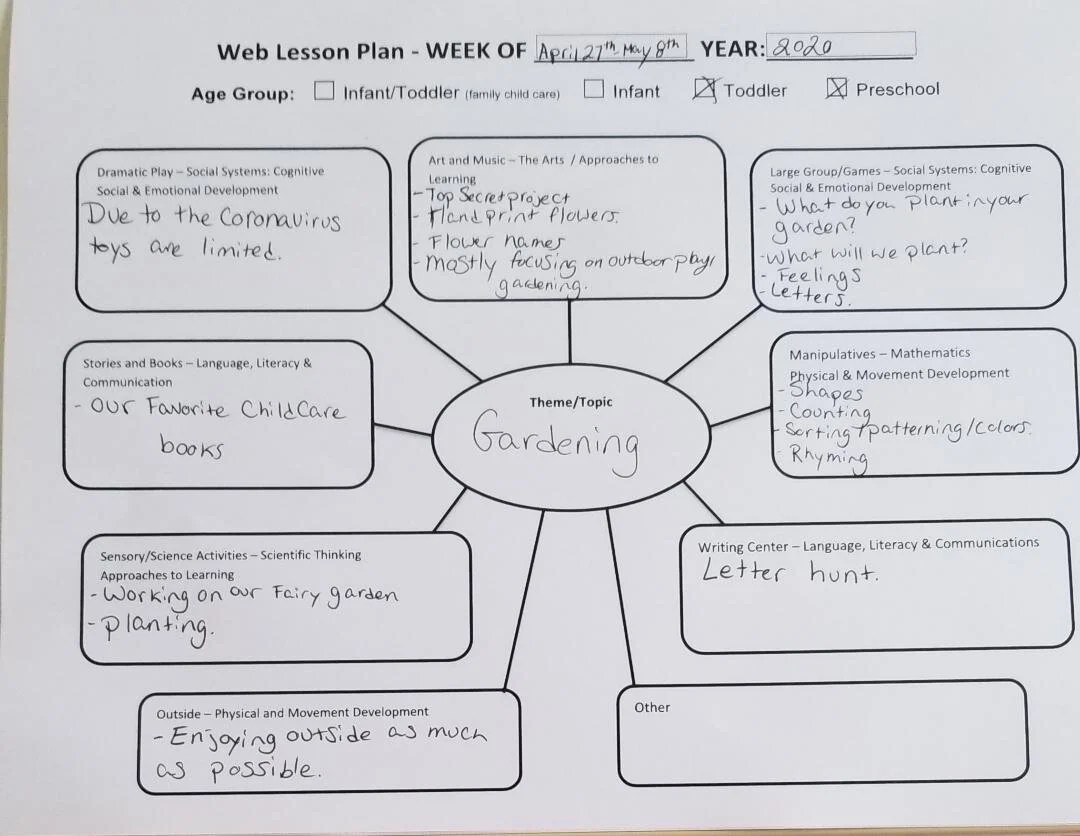 Web Lesson Plan - WEEK OF April 27th May 8th YEAR: 2020
Age Group: Infant/Toddler (family child care) Infant Toddler Preschool
Dramatic Play – Social Systems: Cognitive
Social & Emotional Development
Due to the Coronavirus
toys are limited.
Art and Music – The Arts / Approaches to
Learning
- Top Secret project
- Hand print flowers.
- Flower names
- Mostly focusing on outdoor play/
gardening.
Large Group/Games – Social Systems: Cognitive
Social & Emotional Development
- What do you plant in your
garden?
- What will we plant?
- Feelings
- Letters.
Stories and Books – Language, Literacy &
Communication
- Our Favorite ChildCare
books
Theme/Topic
Gardening
Manipulatives – Mathematics
Physical & Movement Development
- Shapes
- Counting
- Sorting + patterning/Colors.
- Rhyming
Sensory/Science Activities – Scientific Thinking
Approaches to Learning
- Working on our Fairy garden
- Planting.
Writing Center – Language, Literacy & Communications
Letter hunt.
Outside – Physical and Movement Development
- Enjoying outside as much
as possible.
Other